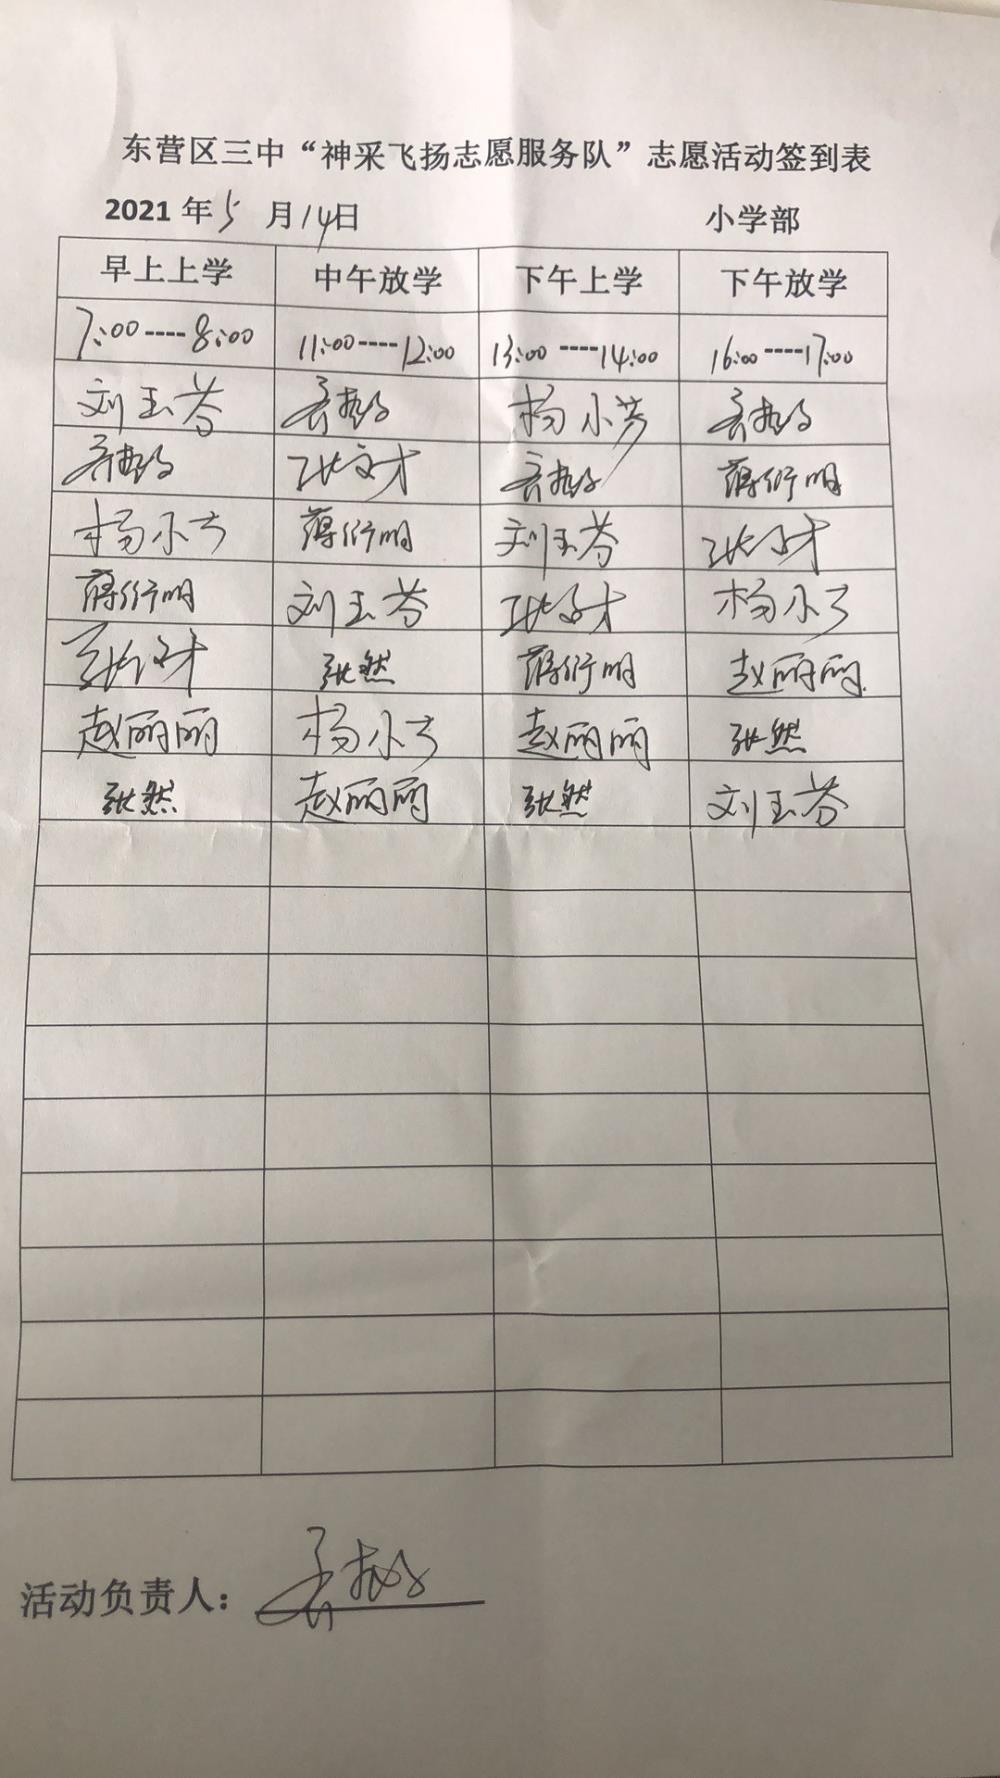 东营区三中“神采飞扬志愿服务队”志愿活动签到表
2021 年 5 月 14日 小学部
早上上学 中午放学 下午上学 下午放学
7:00----8:00 11:00----12:00 13:00----14:00 16:00----17:00
刘玉芬 杨小芳
张文才 蒋衍明
杨小芳 蒋衍明 刘玉芬 张文才
蒋衍明 刘玉芬 张文才 杨小芳
张文才 张然 蒋衍明 赵丽丽
赵丽丽 杨小芳 赵丽丽 张然
张然 赵丽丽 张然 刘玉芬
活动负责人：